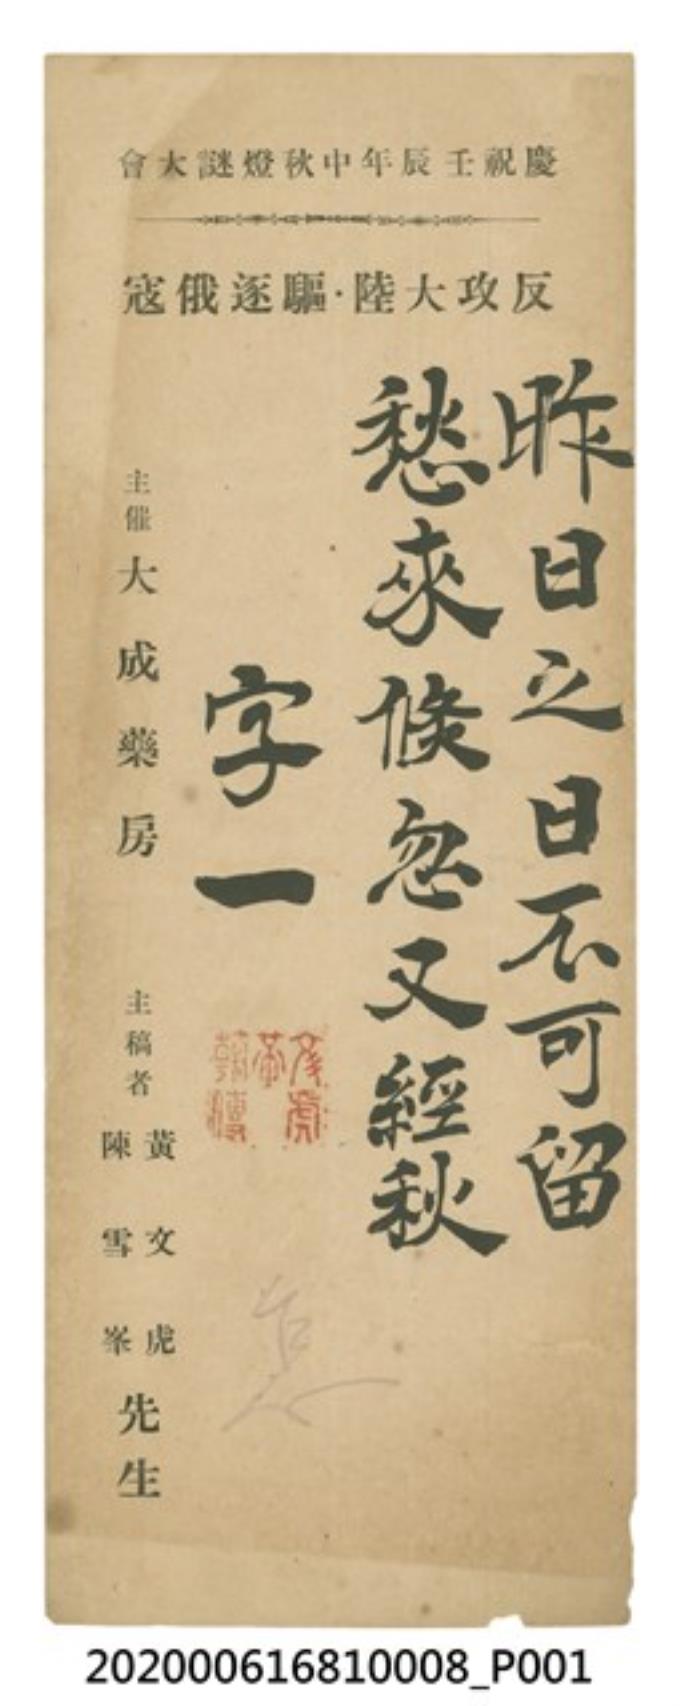 慶祝壬辰年中秋燈謎大會
反攻大陸·驅逐俄寇
昨日之日不可留
愁來倏忽又經秋
字一
主催 大成藥房
主稿者 黃文虎 陳雪峯 先生
怎
202000616810008_P001